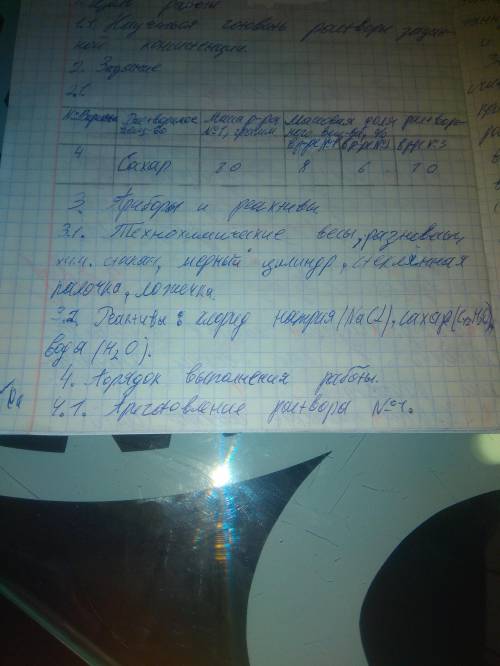 работы
1.1. Научиться готовить растворы задан-
ной концентрации.
2. Задание
№ Варианта Растворимое вещ-во Масса р-ра №1, грамм Массовая доля растворен-
ного вещ-ва, %
в р-ре №1 в р-ре №2 в р-ре №3
4 Сахар 20 8 6 10
3. Приборы и реактивы
3.1. Технохимические весы, разновесы,
хим. стакан, мерный цилиндр, стеклянная
палочка, ложечка.
3.2. Реактивы: хлорид натрия (NaCl), сахар
вода (H2O).
4. Порядок выполнения работы.
4.1. Приготовление раствора №1.